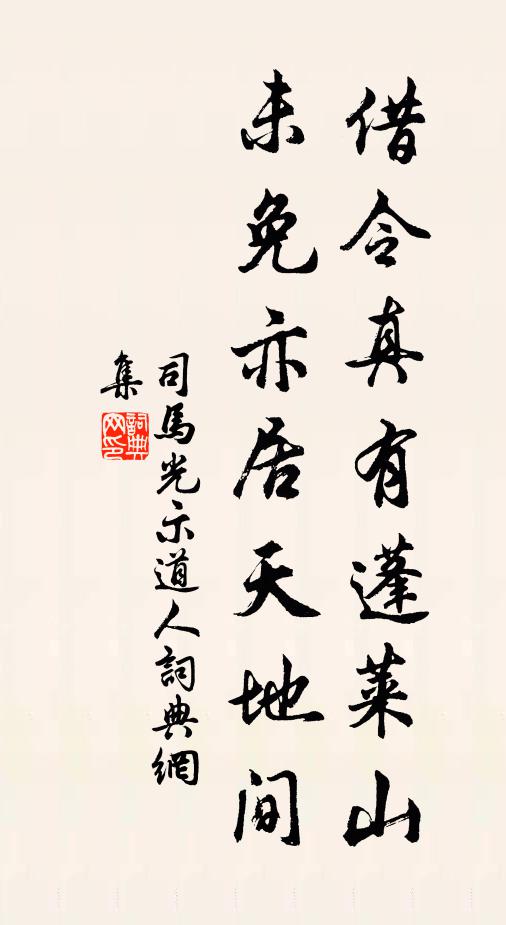 借令真有蓬莱山
未免亦居天地间
司馬光示道人詞典網
集
詞典網印